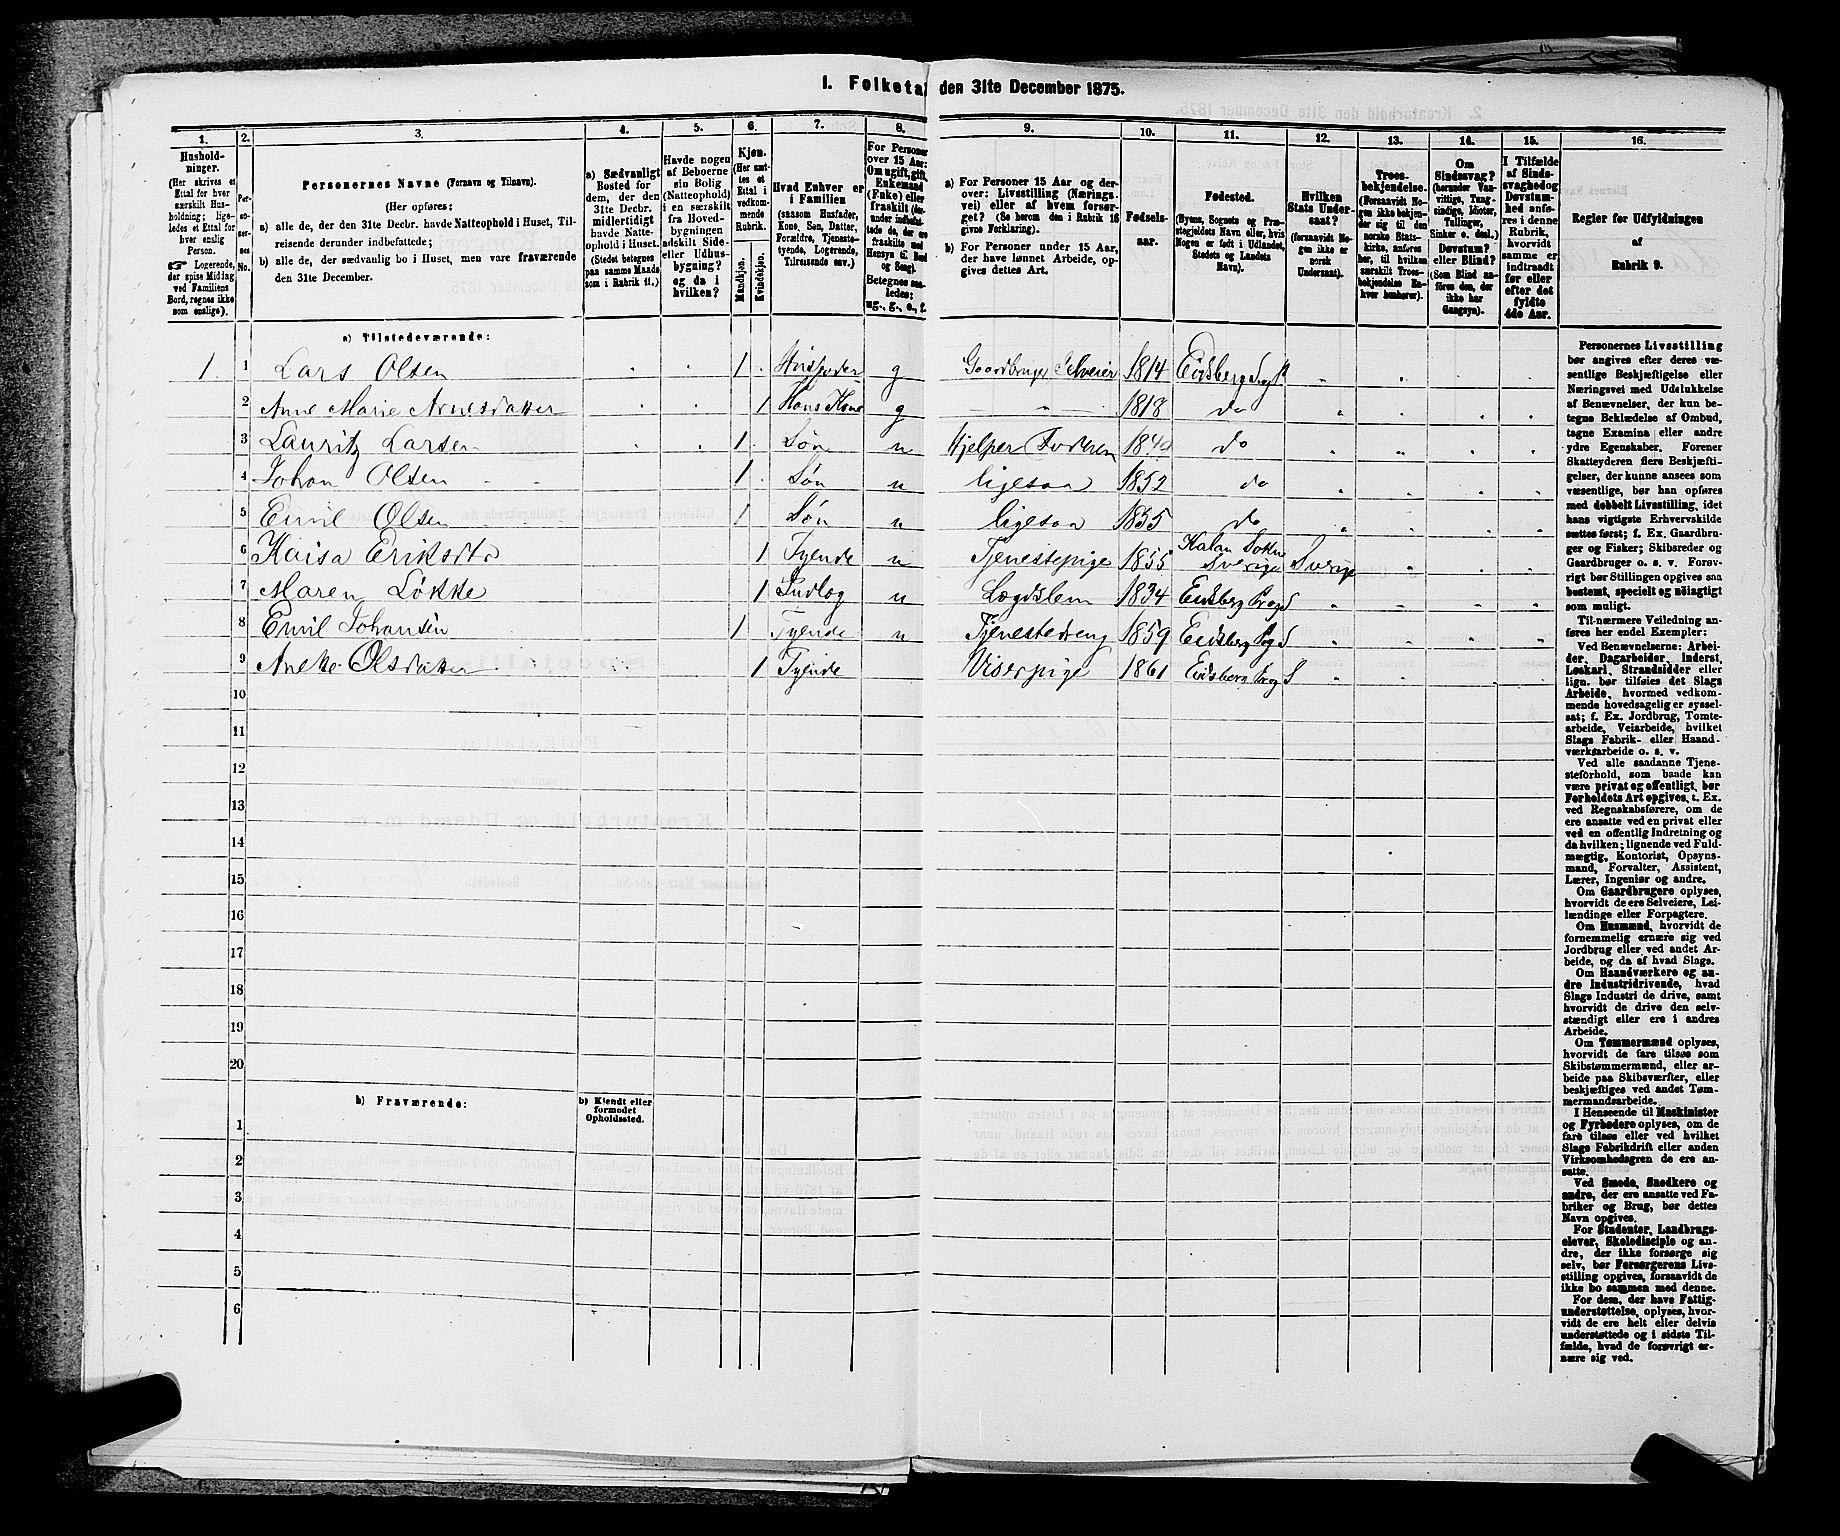 1. Folketa den 31te December 1875.
1. 2. 3. 4. 5. 6. 7. 8. 9. 10. 11. 12. 13. 14. 15. 16.
Hushold-
ninger.
(Her skrives et
Ettal for hver
særskilt Hus-
holdning; lige-
ledes et Ettal for
hver enslig
Person.
☞ Logerende,
der spise Middag
ved Familiens
Bord, regnes ikke
som enslige).
Per-
so-
ner-
nes
No.
Personernes Navne (Fornavn og Tilnavn).
(Her opføres:
a) alle de, der den 31te Decbr. havde Natteophold i Huset, Til-
reisende derunder indbefattede;
b) alle de, der sædvanlig bo i Huset, men vare fraværende
den 31te December.
a) Sædvanligt
Bosted for
dem, der den
31te Decbr.
midlertidigt
havde Natte-
ophold i Huset.
(Stedet betegnes
paa samme Maade
som i Rubrik 11.)
Havde nogen
af Beboerne
sin Bolig
(Natteophold)
i en særskilt
fra Hoved-
bygningen
adskilt Side-
eller Udhus-
bygning?
og da i
hvilken?
Kjøn.
(Her sæt-
tes et
Ettal i
vedkom-
mende
Rubrik.
Mandkjøn.
Kvindekjøn.
Hvad Enhver er
i Familien
(saasom Husfader,
Kone, Søn, Datter,
Forældre, Tjeneste-
tyende, Logerende,
Tilreisende osv.)
For Personer
over 15 Aar:
Om ugift, gift,
Enkemand
(Enke) eller
fraskilt
Betegnes saa-
ledes:
ug., g., e., f.
a) For Personer 15 Aar og der-
over: Livsstilling (Nærings-
vei) eller af hvem forsør-
get? (Se herom den i Rubrik 16
givne Forklaring).
b) For Personer under 15 Aar,
der have lønnet Arbeide, op-
gives dettes Art.
Fødsels-
aar.
Fødested.
(Byens, Sognets og Præ-
stegjeldets Navn eller, hvis
Nogen er født i Udlandet,
Stedets og Landets
Navn).
Hvilken
Stats Under-
saat?
(forsaavidt No-
gen ikke er
norsk
Undersaat).
Troes-
bekjendelse.
(Forsaavidt No-
gen ikke bekjen-
der sig til den
norske Stats-
kirke, anføres
her, til hvilken
særskilt Troes-
bekjendelse En-
hver henhører).
Om
Sindssvag?
(herunder Van-
vittige, Tung-
sindige, Idioter,
Tullinger,
Sinker o. desl.)
Døvstum?
eller Blind?
(Som Blind an-
føres den, der
ikke har
Gangsyn).
I Tilfælde
af Sinds-
svaghed og
Døvstum-
hed anfø-
res i denne
Rubrik,
hvorvidt
samme er
indtraadt
før eller
efter det
fyldte
4de Aar.
Regler for Udfyldningen
af
Rubrik 9.
a) Tilstedeværende:
1 1 Lars Olsen 1 Husfader g Gaardbruger Selveier 1814 Eidsberg
2 Anne Marie Arnesdatter 1 Hans Kone g 1818 do
3 Lauritz Larsen 1 Søn u Hjelper Faderen 1840 do
4 Johan Olsen 1 Søn u ligesaa 1852 do
5 Emil Olsen 1 Søn u ligesaa 1855 do
6 Kaisa Eriksdtr 1 Tyende u Tjenestepige 1855 Sverige Sverige
7 Maren Løkke 1 Indlag u Lægdslem 1834 Eidsberg
8 Emil Johansen 1 Tyende u Tjenestedreng 1859 Eidsberg
9 Anette Olsdatter 1 Tyende Viserpige 1861 Eidsberg
10
11
12
13
14
15
16
17
18
19
20
b) Fraværende:
b) Kjendt eller
formodet
Opholdssted.
1
2
3
4
5
6
Personernes Livsstilling
bør angives efter deres væ-
sentlige Beskjæftigelse eller
Næringsvei med Udelukkelse
af Benævnelser, der kun be-
tegne Beklædelse af Ombud,
tagne Examina eller andre
ydre Egenskaber. Forener
Skatteyderen flere Beskjæfti-
gelser, der kunne ansees som
væsentlige, bør han opføres
med dobbelt Livsstilling, idet
hans vigtigste Erhvervskilde
sættes først; f. Ex. Gaardbru-
ger og Fisker; Skibsreder og
Gaardbruger o. s. v. Forøv-
rigt bør Stillingen opgives saa
bestemt, specielt og nøiagtigt
som muligt.
Til nærmere Veiledning an-
føres her endel Exempler:
Ved Benævnelserne: Arbei-
der, Dagarbeider, Inderst,
Løskarl, Strandsidder eller
lign. bør tilføies det Slags
Arbeide, hvormed vedkom-
mende hovedsagelig er syssel-
sat; f. Ex. Jordbrug, Tomte-
arbeide, Veiarbeide, hvilket
Slags Fabrik- eller Haand-
værksarbeide o. s. v.
Ved alle saadanne Tjene-
steforhold, som baade kan
være privat og offentligt, bør
Forholdets Art opgives, t. Ex.
ved Regnskabsførere, om de
ere ansatte ved en privat eller
ved en offentlig Indretning og
da hvilken; lignende ved Fuld-
mægtig, Kontorist, Opsyns-
mand, Forvalter, Assistent,
Lærer, Ingeniør og andre.
Om Gaardbrugere oplyses,
hvorvidt de ere Selveiere, Lei-
lændinge eller Forpagtere.
Om Husmænd, hvorvidt de
fornemmelig ernære sig ved
Jordbrug eller ved andet Ar-
beide, og da af hvad Slags.
Om Haandværkere og an-
dre Industridrivende, hvad
Slags Industri de drive, samt
hvorvidt de drive den selv-
stændigt eller ere i andres
Arbeide.
Om Tømmermænd oplyses,
hvorvidt de fare tilsøs som
Skibstømmermænd, eller ar-
beide paa Skibsværfter, eller
beskjæftiges ved andet Tøm-
mermandsarbeide.
I Henseende til Maskinister
og Fyrbødere oplyses, om de
fare tilsøs eller ved hvilket
Slags Fabrikdrift eller anden
Virksomhedsgren de ere an-
satte.
Ved Smede, Snedkere og
andre, der ere ansatte ved Fa-
briker og Brug, bør dettes
Navn opgives.
For Studenter, Landbrugs-
elever, Skoledisciple og an-
dre, der ikke forsørge sig
selv, bør Forsørgerens Livs-
stilling opgives, forsaavidt de
ikke bo sammen med denne.
For dem, der have Fattig-
understøttelse, oplyses, hvor-
vidt de ere helt eller delvis
understøttede og i sidste Til-
fælde, hvad de forøvrigt er-
nære sig ved.